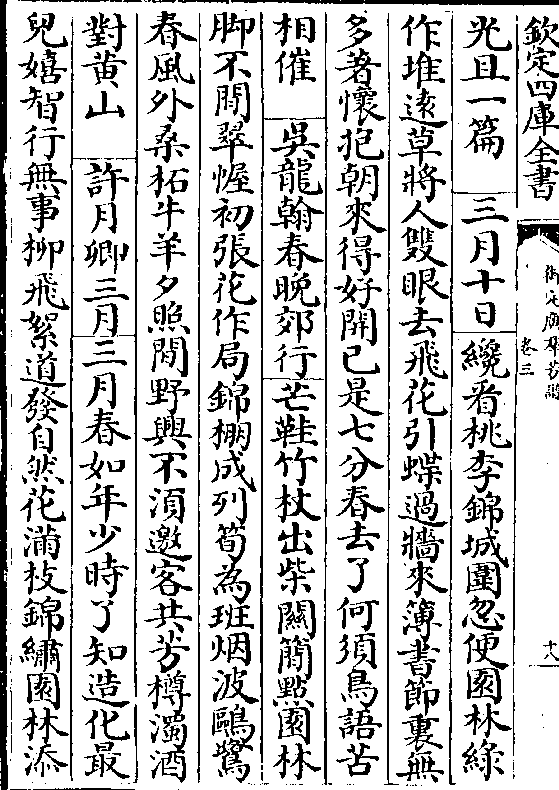 欽定四庫全書
御定廣羣芳譜
卷三
十八
光且一篇 三月十日 纔看桃李錦城圍忽使園林綠
作堆遠草將人雙眼去飛花引蝶過牆來簿書節裏無
多著懷抱朝來得好開已是七分春去了何須鳥語苦
相催 吳龍翰春晚郊行 芒鞋竹杖出柴關簡點園林
脚不閒翠幄初張花作局錦棚成列筍為班烟波鷗鷺
春風外桑柘牛羊夕照間野興不須邀客共芳樽濁酒
對黄山 許月卿三月 三月春如年少時了知造化最
兒嬉智行無事柳飛絮道發自然花滿枝錦繡園林添